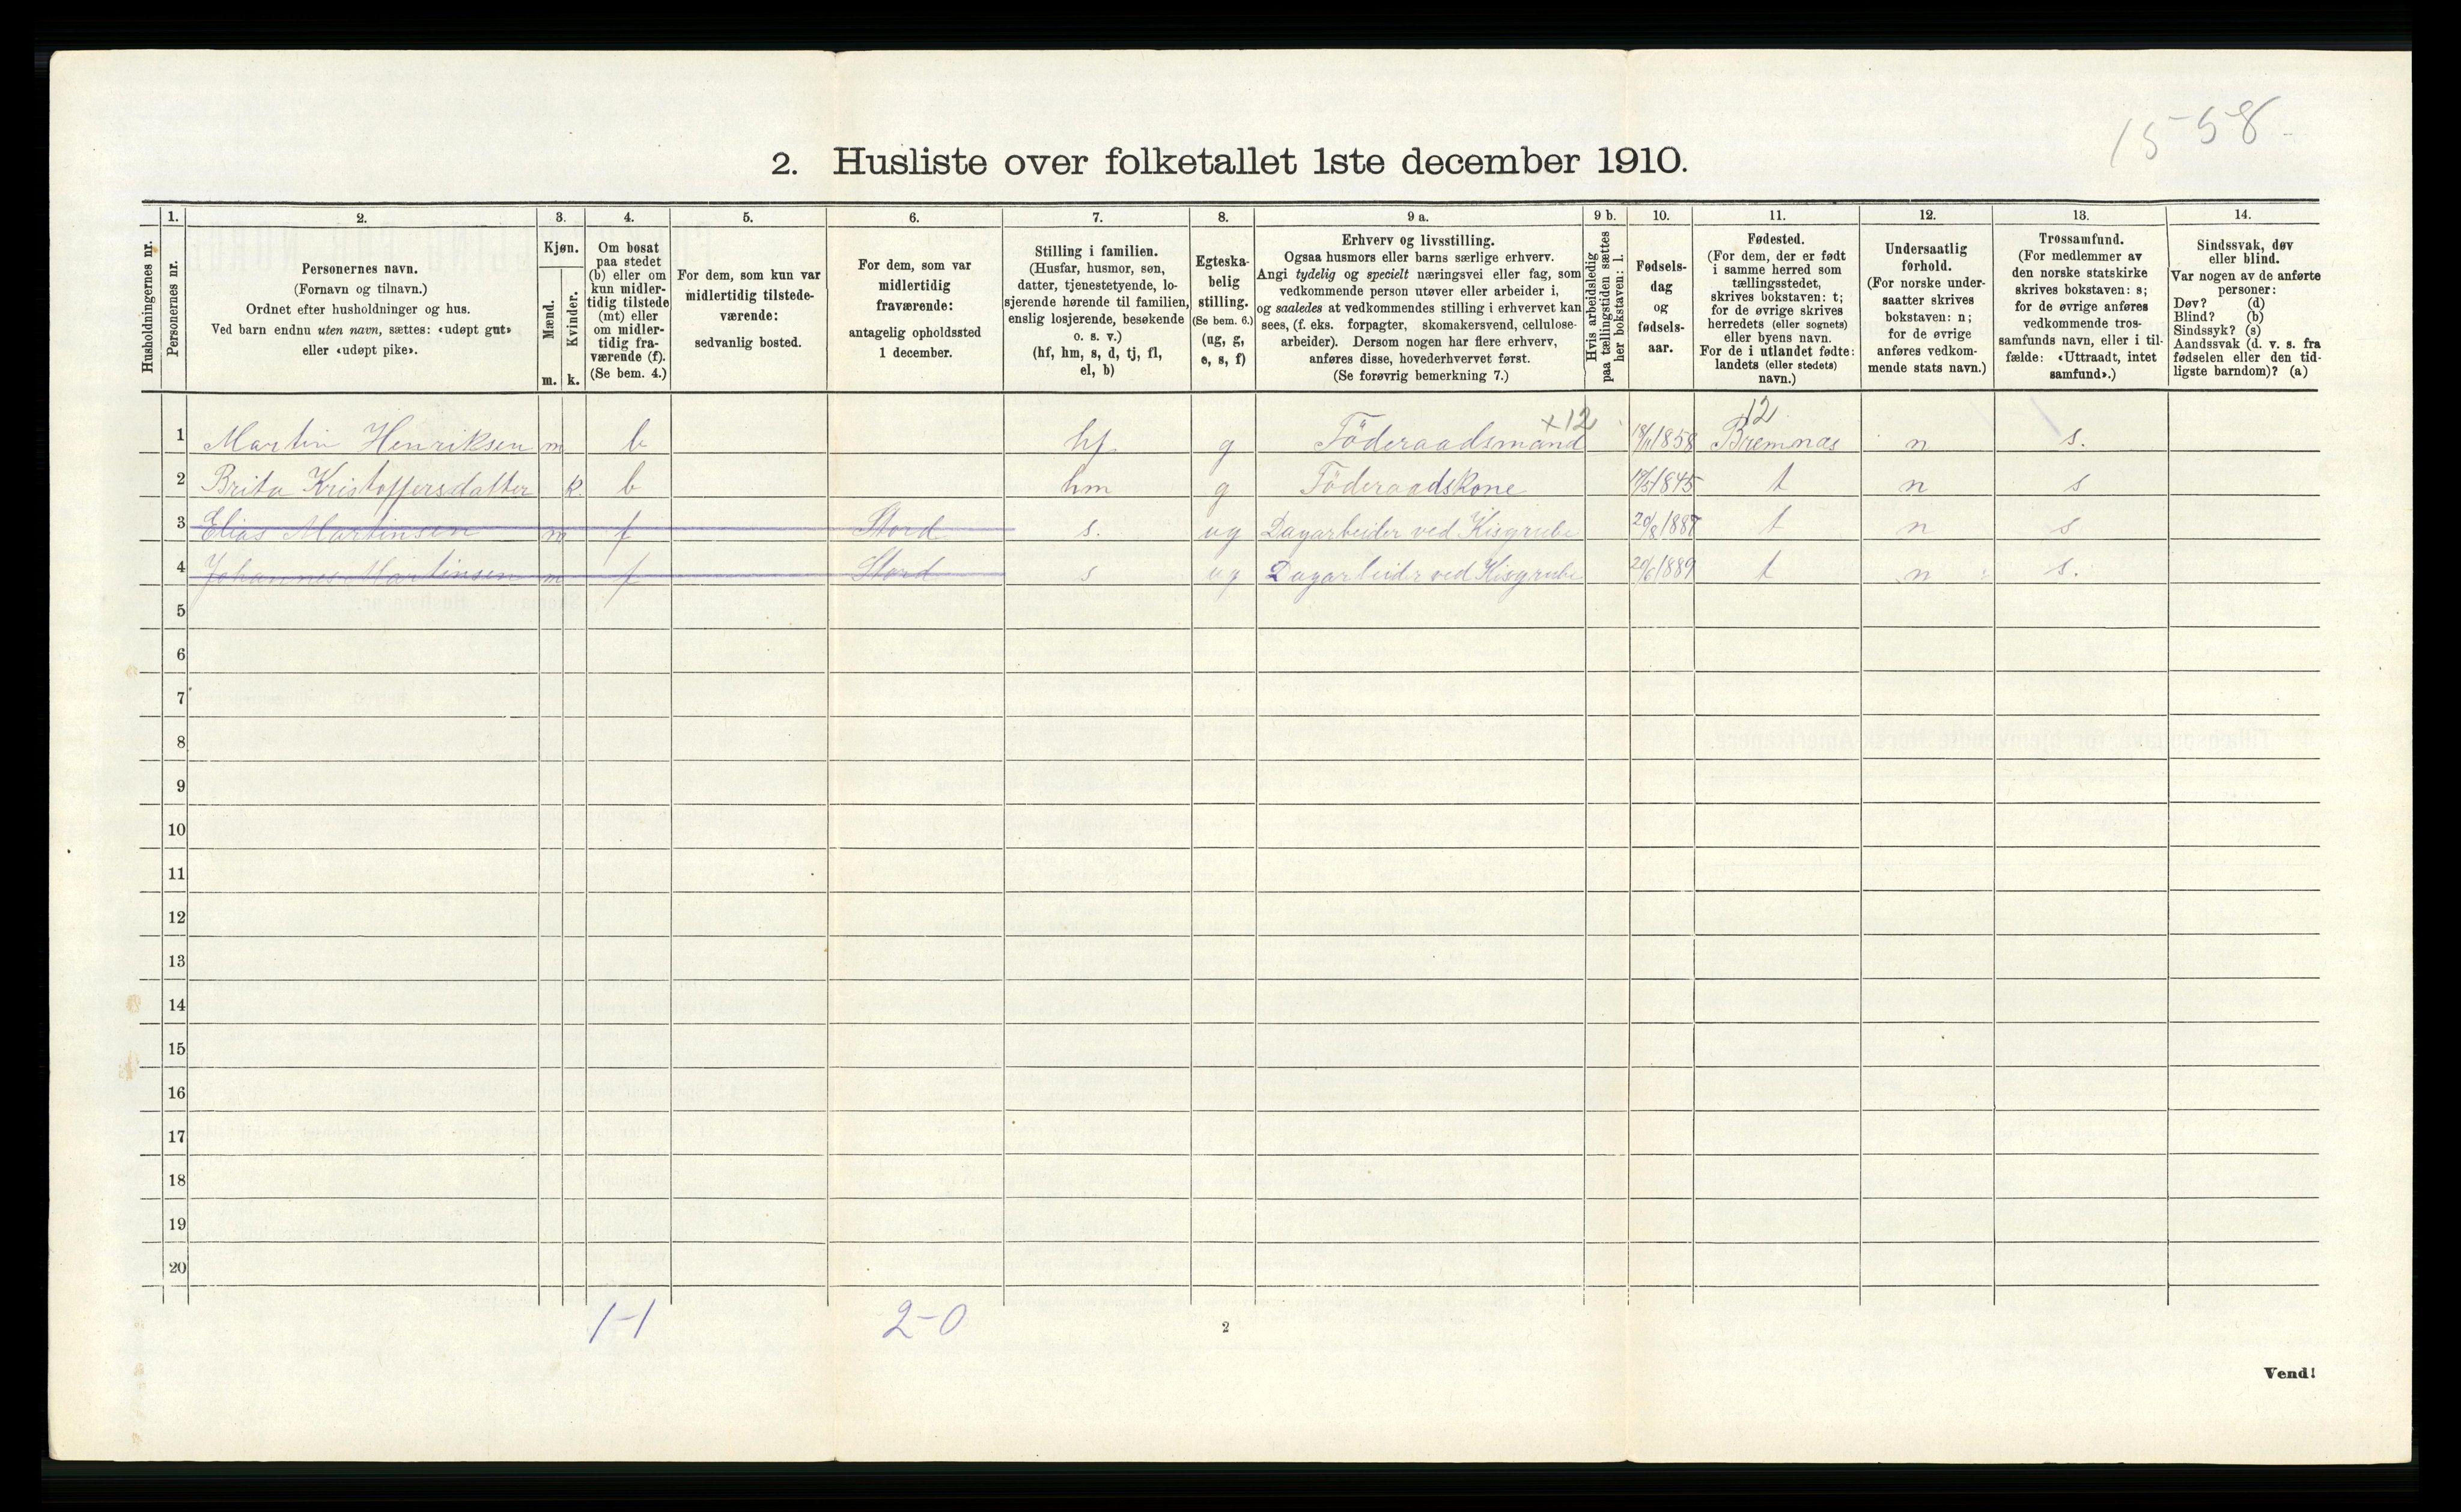 15-58-
2. Husliste over folketallet 1ste december 1910.
Husholdningernes nr.
1.
Personernes nr.
2.
Personernes navn.
(Fornavn og tilnavn.)
Ordnet efter husholdninger og hus.
Ved barn endnu uten navn, sættes: «udøpt gut»
eller «udøpt pike».
3.
Kjøn.
Mænd.
Kvinder.
m. k.
4.
Om bosat
paa stedet
(b) eller om
kun midler-
tidig tilstede
(mt) eller
om midler-
tidig fra-
værende (f).
(Se bem. 4.)
5.
For dem, som kun var
midlertidig tilstede-
værende:
sedvanlig bosted.
6.
For dem, som var
midlertidig
fraværende:
antagelig opholdssted
1 december.
7.
Stilling i familien.
(Husfar, husmor, søn,
datter, tjenestetyende, lo-
sjerende hørende til familien,
enslig losjerende, besøkende
o. s. v.)
(hf, hm, s, d, tj, fl,
el, b)
8.
Egteska-
belig
stilling.
(Se bem. 6.)
(ug, g,
e, s, f)
9 a.
Erhverv og livsstilling.
Ogsaa husmors eller barns særlige erhverv.
Angi tydelig og specielt næringsvei eller fag, som
vedkommende person utøver eller arbeider i,
og saaledes at vedkommendes stilling i erhvervet kan
sees, (f. eks. forpagter, skomakersvend, cellulose-
arbeider). Dersom nogen har flere erhverv,
anføres disse, hovederhvervet først.
(Se forøvrig bemerkning 7.)
9 b.
Hvis arbeidsledig
paa tællingstiden sættes
her bokstaven: l.
10.
Fødsels-
dag
og
fødsels-
aar.
11.
Fødested.
(For dem, der er født
i samme herred som
tællingsstedet,
skrives bokstaven: t;
for de øvrige skrives
herredets (eller sognets)
eller byens navn.
For de i utlandet fødte:
landets (eller stedets)
navn.)
12.
Undersaatlig
forhold.
(For norske under-
saatter skrives
bokstaven: n;
for de øvrige
anføres vedkom-
mende stats navn.)
13.
Trossamfund.
(For medlemmer av
den norske statskirke
skrives bokstaven: s;
for de øvrige anføres
vedkommende tros-
samfunds navn, eller i til-
fælde: «Uttraadt, intet
samfund».)
14.
Sindssvak, døv
eller blind.
Var nogen av de anførte
personer:
Døv? (d)
Blind? (b)
Sindssyk? (s)
Aandssvak (d. v. s. fra
fødselen eller den tid-
ligste barndom)? (a)
+12 12
1 Martin Henriksen m b hf g Föderaadsmand 18/11 1858 Bremnas n s.
2 Brita Kristoffersdatter k. b hm g Föderaadskone 1845 t n s
3 Elias Martinsen m f Stord s. ug Dagarbeider ved Kisgrube 20/8 1887 t n s
4 Johannes Martinsen m f Stord s ug Dagarbeider ved Kisgrube 20/6 1889 t n s.
5
6
7
8
9
10
11
12
13
14
15
16
17
18
19
20
1-1 2-0
2
Vend!